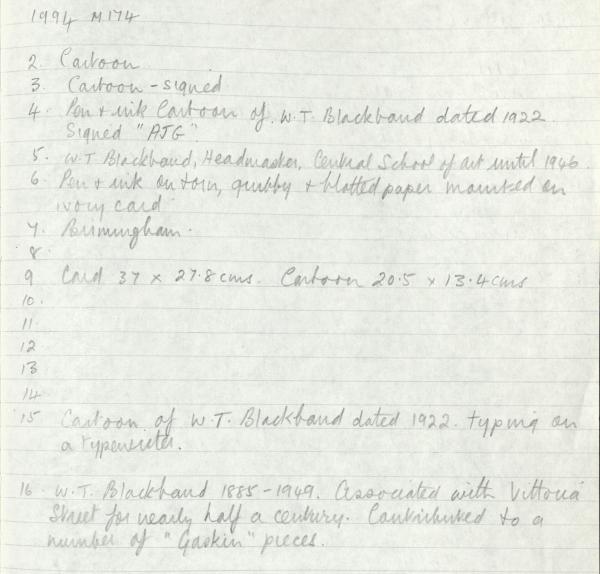 1994 M174
2. Cartoon
3. Cartoon - signed
4. Pen + ink Cartoon of W.T. Blackband dated 1922.
Signed "AJG"
5. W.T Blackband, Headmaster, Central School of art until 1946.
6 Pen + ink on torn, grubby + blotted paper mounted on
ivory card
7. Birmingham.
8.
9 Card 37 x 27.8 cms. Cartoon 20.5 x 13.4 cms
10.
11.
12
13
14.
15 Cartoon of W.T. Blackband dated 1922. typing on
a typewriter.
16. W.T. Blackband 1885-1949. Associated with Vittoria
Street for nearly half a century. Contributed to a
number of "Gaskin" pieces.